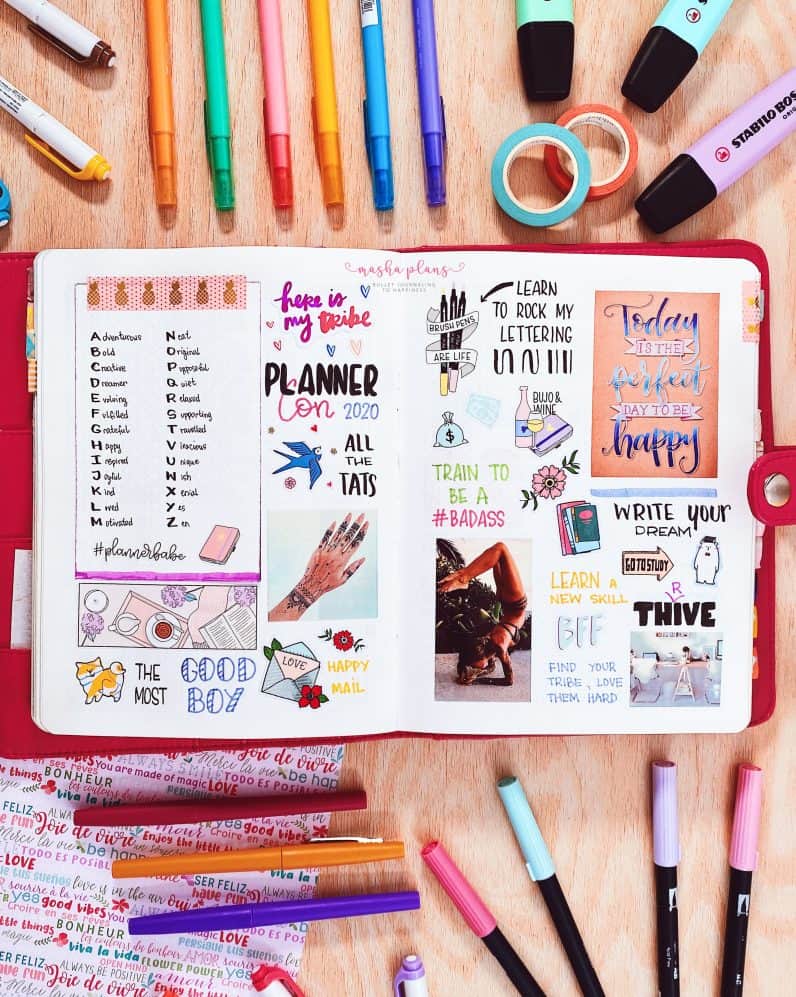 STABILO BOSS
ORIGINAL
masha plans
BULLET JOURNALING
TO HAPPINESS
Adventurous
Bold
Creative
Dreamer
Evolving
Fulfilled
Grateful
Happy
Inspired
Joyful
Kind
Loved
Motivated
Neat
Original
Purposeful
Quiet
Relaxed
Supporting
Travelled
Unique
Wish
Xenial
Yes
Zen
#plannerbabe
THE
MOST
GOOD
BOY
here is
my tribe
PLANNER
Con 2020
ALL
THE
TATS
LOVE
HAPPY
MAIL
BRUSH PENS
ARE LIFE
LEARN
TO ROCK MY
LETTERING
$
BUJO &
WINE
TRAIN TO
BE A
#BADASS
Today
IS THE
perfect
DAY TO BE
happy
WRITE YOUR
DREAM
GO TO STUDY
LEARN A
NEW SKILL
R
THIVE
BFF
FIND YOUR
TRIBE, LOVE
THEM HARD
Joie de vivre
BE POSITIVE
ALWAYS SMILE
Merci la vie
be happy
little things
BONHEUR
You are made of magic
TODO ES POSIBLE
viva la vida
LOVE
good vibes
Enjoy the little things
SER FELIZ
have fun
love is in the air
Croire en ses rêves
Persigue tus sueños
AMOR
FLOWER POWER
OPEN MIND
ALWAYS BE POSITIVE